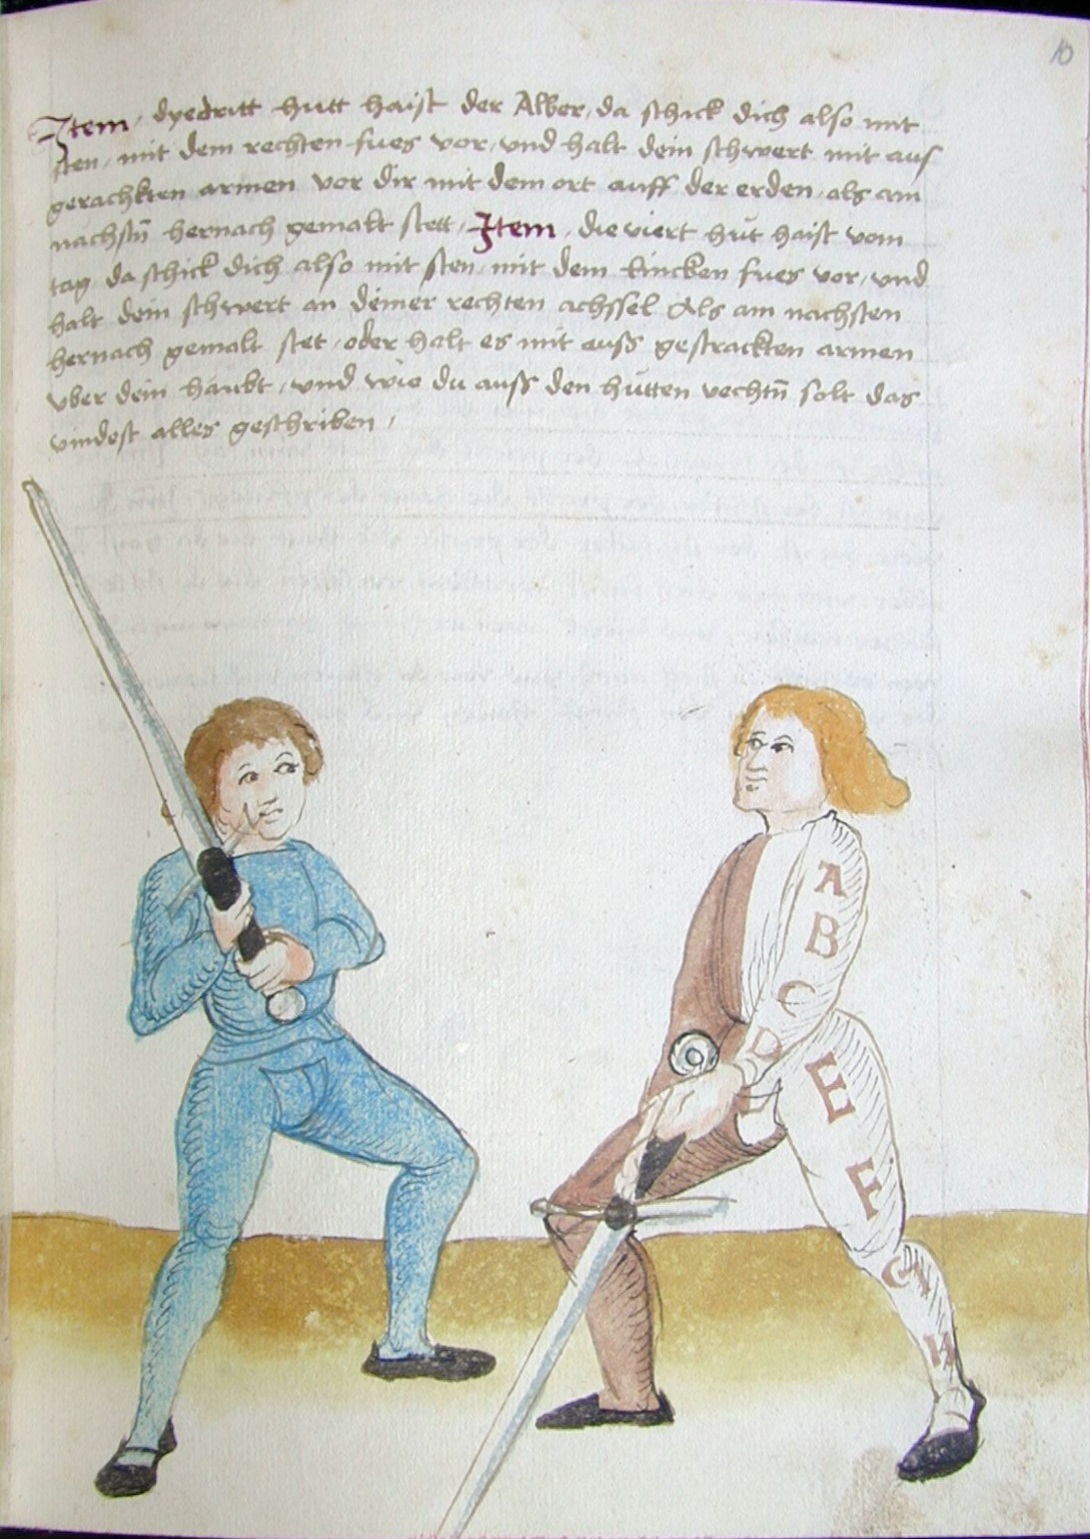 10
Item, dyedritt hutt haist der Alber, da schick dich also mit
sten, mit dem rechten fues vor, und halt dein schwert mit auf
gerachkten armen vor dir mit dem ort auff der erden, als am
nachstn̄ hernach gemalt stett, Item, die viert hut haist vom
tag da schick dich also mit sten, mit dem lincken fues vor, und
halt dein schwert an deiner rechten achssel Als am nachsten
hernach gemalt stet, oder halt es mit auss gestrackten armen
vber dein haubt, und wie du auss den hutten vechtn̄ solt das
vindest alles geschriben,
A
B
C
D
E
F
G
H